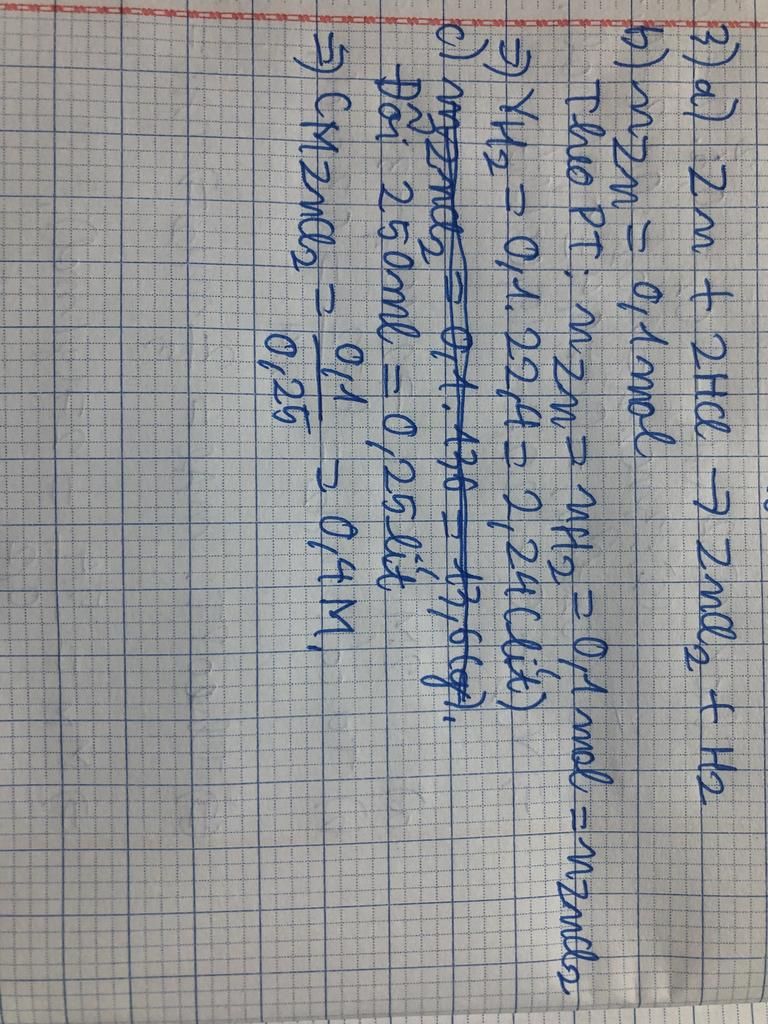 3) a) Zn + 2HCl → ZnCl2 + H2
b) nZn = 0,1 mol
Theo PT: nZn = nH2 = 0,1 mol = nZnCl2
=) VH2 = 0,1. 22,4 = 2,24 (lít)
c) mZnCl2 = 0,1. 136 = 13,6 (g).
Đổi 250ml = 0,25 lít
=) CM ZnCl2 = 0,1 / 0,25 = 0,4 M.